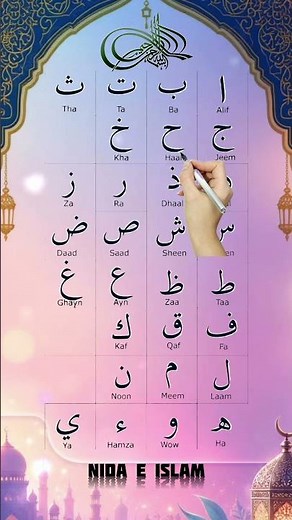 ا ب ت ث
Tha Ta Ba Alif
ج ح خ
Kha Haa Jeem
ذ ر ز
Za Ra Dhaal
ش ص ض
Daad Saad Sheen
ط ظ ع غ
Ghayn Ayn Zaa Taa
ف ق ك
Kaf Qaf Fa
ل م ن
Noon Meem Laam
ه و ء ي
Ya Hamza Wow Ha
NIDA E ISLAM